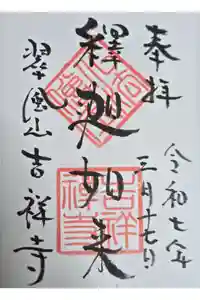 奉拝
令和七年
三月十七日
釋迦如来
翠風山吉祥寺
吉祥禅寺